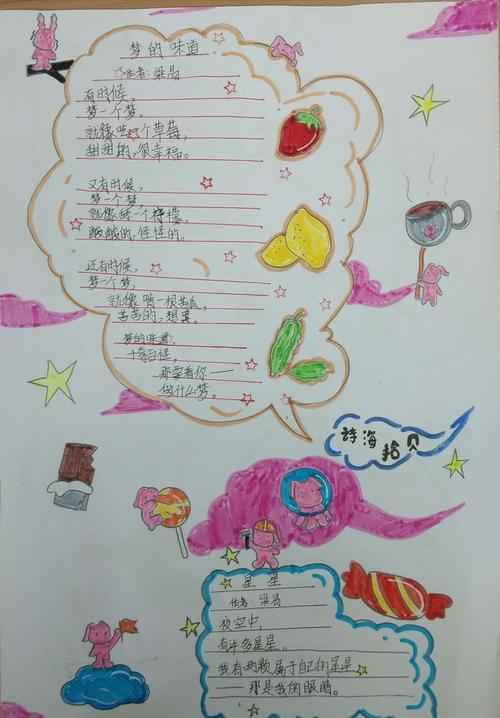 梦的味道
作者:梁易
有时候,
梦一个梦,
就像吃一个草莓,
甜甜的,很幸福。
又有时候,
梦一个梦,
就像练一个柠檬,
酸酸的,怪怪的。
还有时候,
梦一个梦,
就像啃一根苦瓜,
苦苦的,想哭。
梦的味道,
十等日候,
那要看你——
做什么梦。
詩海拾贝
星星
作者:梁易
夜空中,
有许多星星。
我有两颗属于自己的星星
——那是我的眼睛。